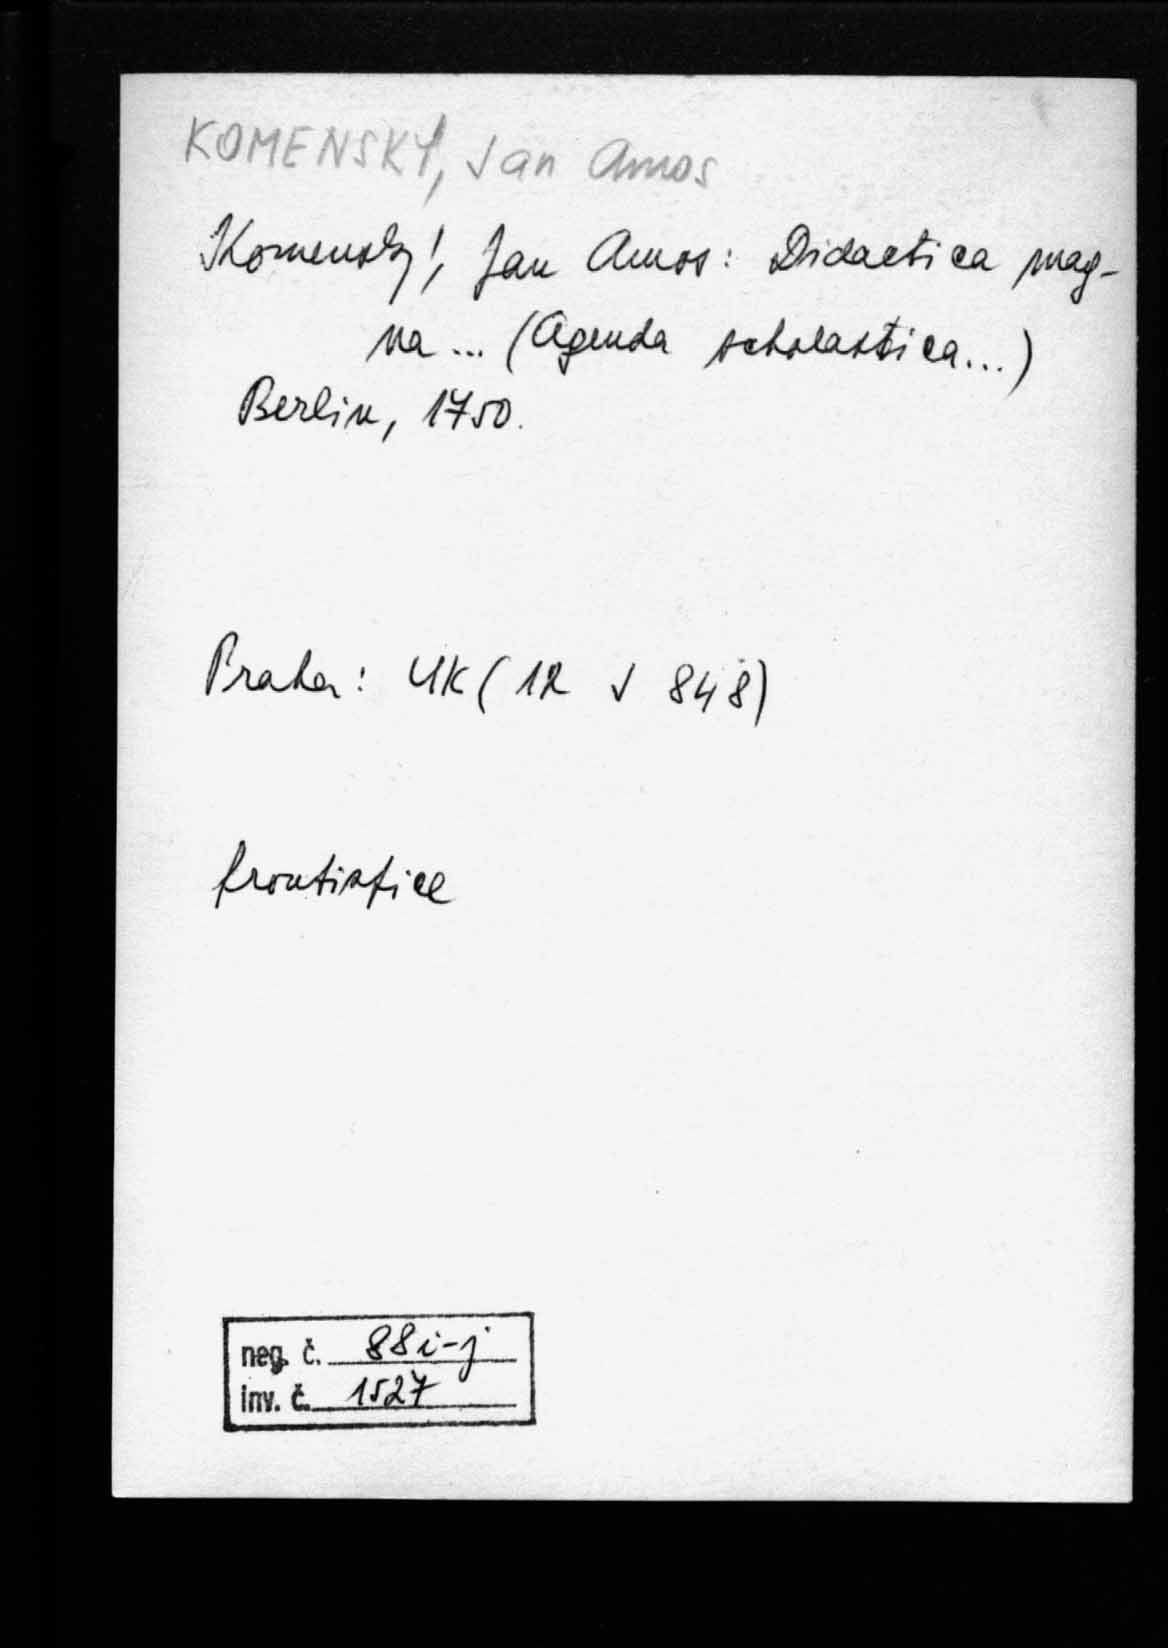 KOMENSKÝ, Jan Amos
Komenský, Jan Amos: Didactica mag-
na... (Agenda scholastica...)
Berlin, 1750.
Praha: UK (12 J 848)
frontispice
neg. č. 88 i-j
inv. č. 1527